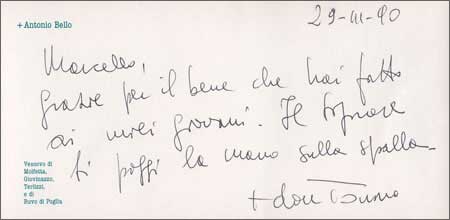 + Antonio Bello
29-III-90
Marcello,
grazie per il bene che hai fatto
ai miei giovani. Il Signore
ti poggi la mano sulla spalla.
+ don Tonino
Vescovo di
Molfetta,
Giovinazzo,
Terlizzi,
e di
Ruvo di Puglia